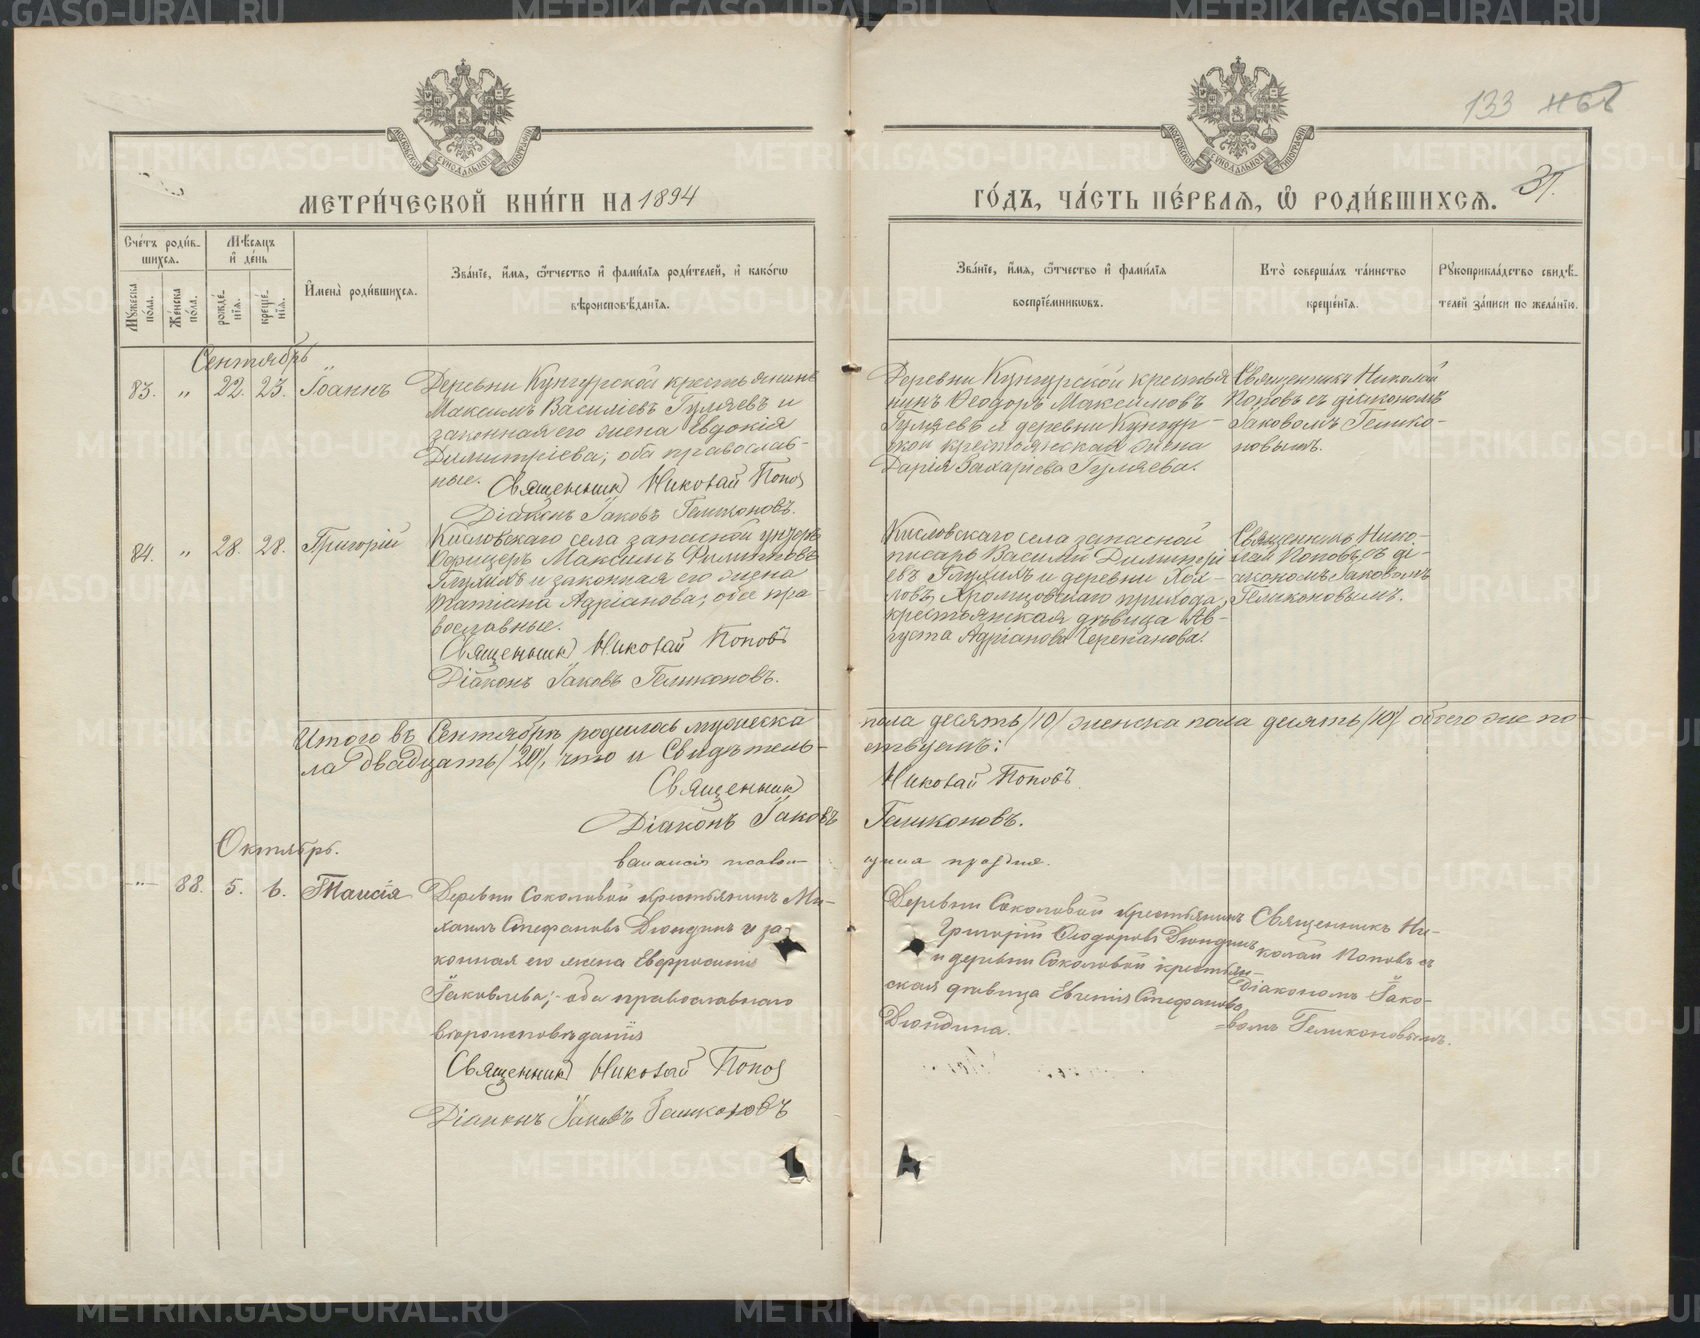 133
МЕТРИ́ЧЕСКОЙ КНИ́ГИ НА 1894
ГО́ДЪ, ЧА́СТЬ ПЕ́РВАѦ, Ѽ РОДИ́ВШИХСѦ.
37.
Сче́тъ роди́в-
шихсѧ.
Мѣ́сѧцъ
и҆ де́нь
Мꙋ́жеска
по́ла.
Же́нска
по́ла.
рожде́-
нїѧ.
креще́-
нїѧ.
И҆мена̀ роди́вшихсѧ.
Зва́нїе, и҆́мѧ, ѻ҆́тчество и҆ фами́лїѧ роди́телей, и҆ како́гѡ
вѣроисповѣ́данїѧ.
Зва́нїе, и҆́мѧ, ѻ҆́тчество и҆ фами́лїѧ
воспрїе́мникѡвъ.
Кто̀ соверша́лъ та́инство
креще́нїѧ.
Рꙋкоприкла́дство свидѣ́-
телей за́писи по жела́нїю.
Сентябрь
83. „ 22. 23. Іоаннъ
Деревни Кунгурской крестьянинъ
Максимъ Василіевъ Гуляевъ и
законная его жена Евдокія
Димитріева; оба православ-
ные. Священникъ Николай Попов
Діаконъ Іаковъ Геликоновъ.
Деревни Кунгурской крестья
нинъ Ѳеодоръ Максимовъ
Гуляевъ и деревни Кунгур-
ской крестьянская жена
Дарія Захаріева Гуляева.
Священникъ Николай
Поповъ съ діакономъ
Іаковомъ Гелико-
новымъ.
84. „ 28. 28. Григорій
Кисловскаго села запасной унтеръ
Офицеръ Максимъ Филипповъ
Глухихъ и законная его жена
Татіана Адріанова; оба пра-
вославные.
Священникъ Николай Поповъ
Діаконъ Іаковъ Геликоновъ.
Кисловскаго села запасной
писарь Василій Димитрі
евъ Глухихъ и деревни Хох-
ловъ, Хромцовскаго прихода,
крестьянская дѣвица Ав-
густа Адріанова Черепанова.
Священникъ Нико-
лай Поповъ съ ді-
акономъ Іаковомъ
Геликоновымъ.
Итого въ Сентябрѣ родилось мужеска пола десять /10/ женска пола десять /10/ обоего же по-
ла двадцать /20/, что и Свидѣтель-ствуемъ:
Священникъ Николай Поповъ.
Діаконъ Іаковъ Геликоновъ.
вакансія псалом-щика праздна.
Октябрь.
-„- 88. 5. 6. Таисія
Деревни Соколовой крестьянинъ Ми-
хаилъ Стефановъ Дюндинъ и за
конная его жена Евфросинія
Іаковлева; - оба православнаго
вѣроисповѣданія
Священникъ Николай Попов
Діаконъ Іаковъ Геликоновъ
Деревни Соколовой крестьянинъ
Григорій Ѳеодоровъ Дюндинъ
и деревни Соколовой крестьян-
ская дѣвица Евгенія Стефанова
Дюндина.
Священникъ Ни-
колай Поповъ съ
діакономъ Іако-
вомъ Геликоновымъ.